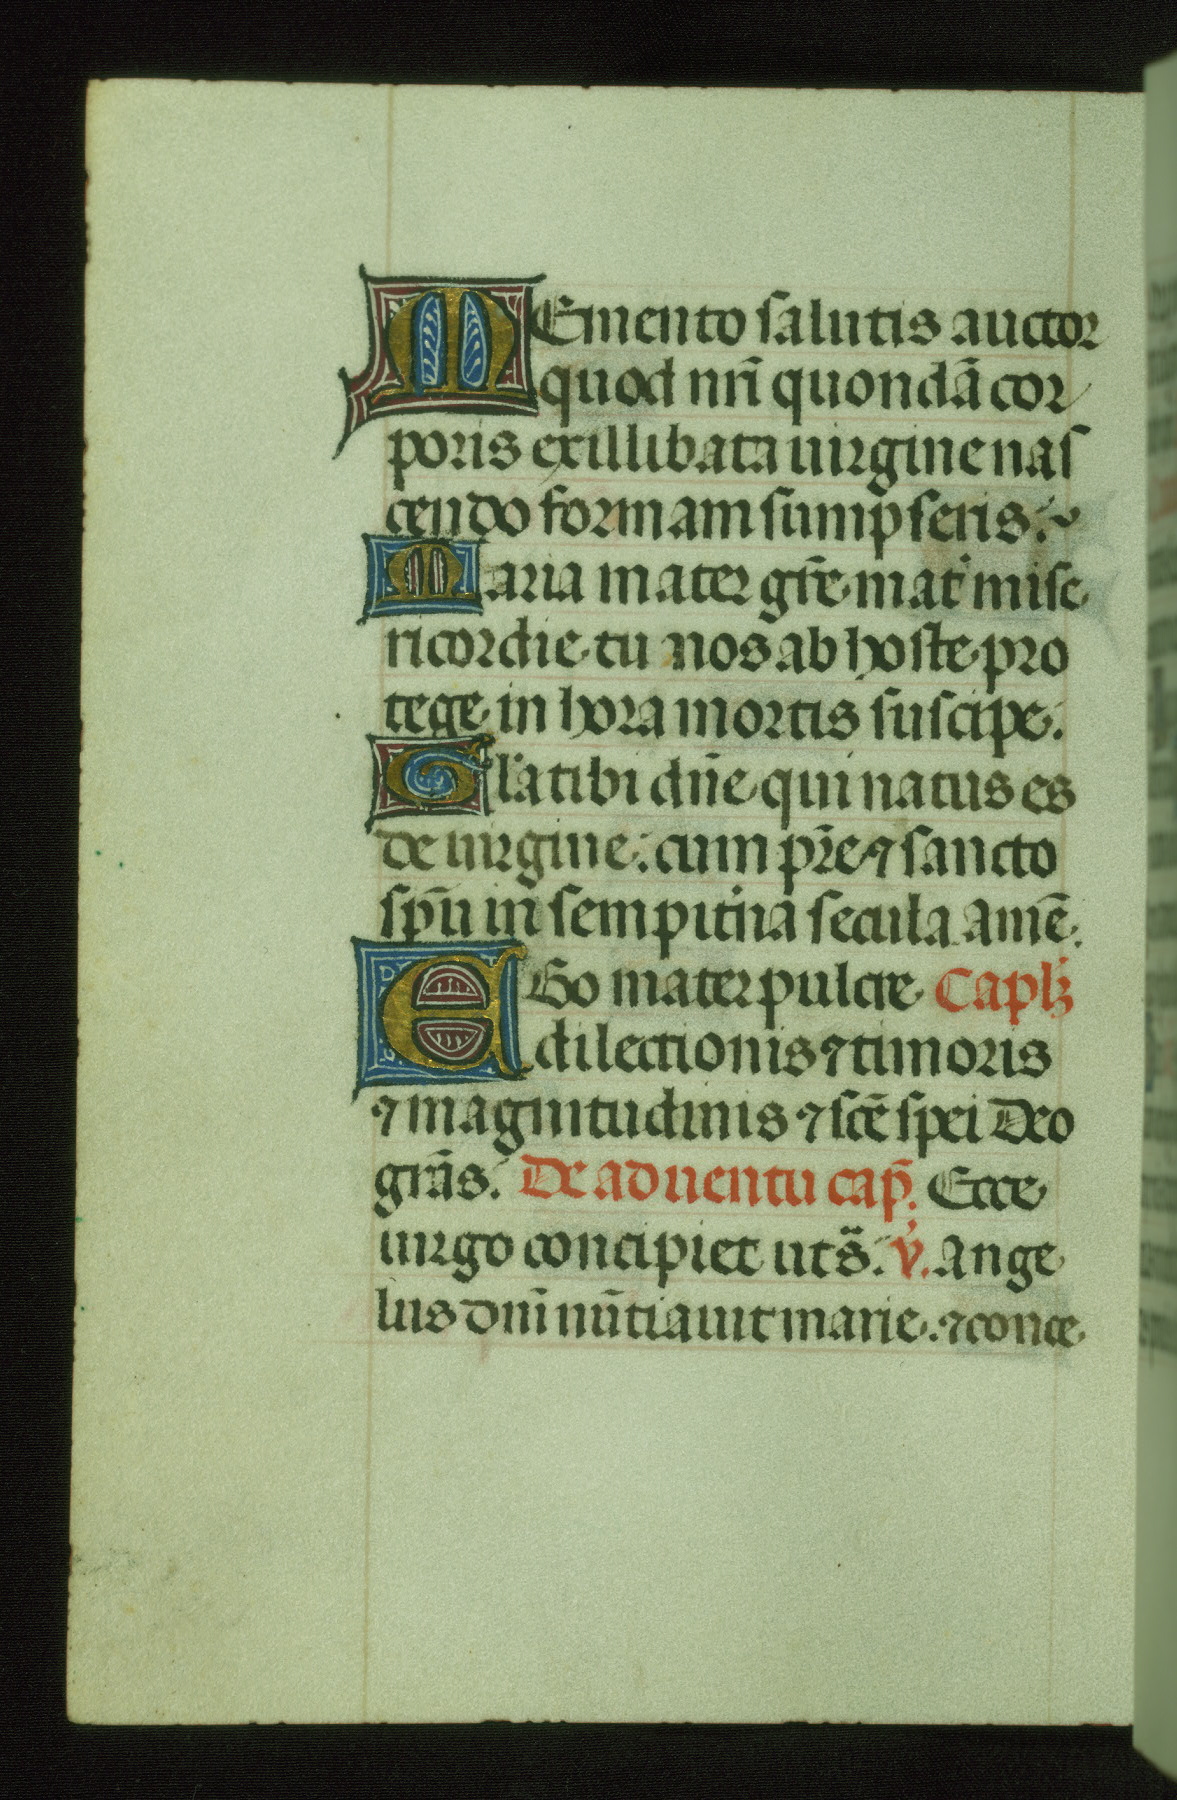 MEmento salutis auctor
quod nr̄i quondā cor
poris ex illibata uirgine nas
cendo formam sumpseris.
Maria mater gr̄e mat' mise
ricordie tu nos ab hoste pro
tege in hora mortis suscipe.
Gl'a tibi dn̄e qui natus es
de uirgine. cum pr̄e ⁊ sancto
sp̄u in sempit'na secula Amē.
EGo mater pulcre Capl'
dilectionis ⁊ timoris
⁊ magnitudinis ⁊ scē spei Deo
gr̄as. De aduentu cap̄. Ecce
uirgo concipiet ut s̄. v̓. Ange
lus dn̄i nūtiauit marie. ⁊ conce